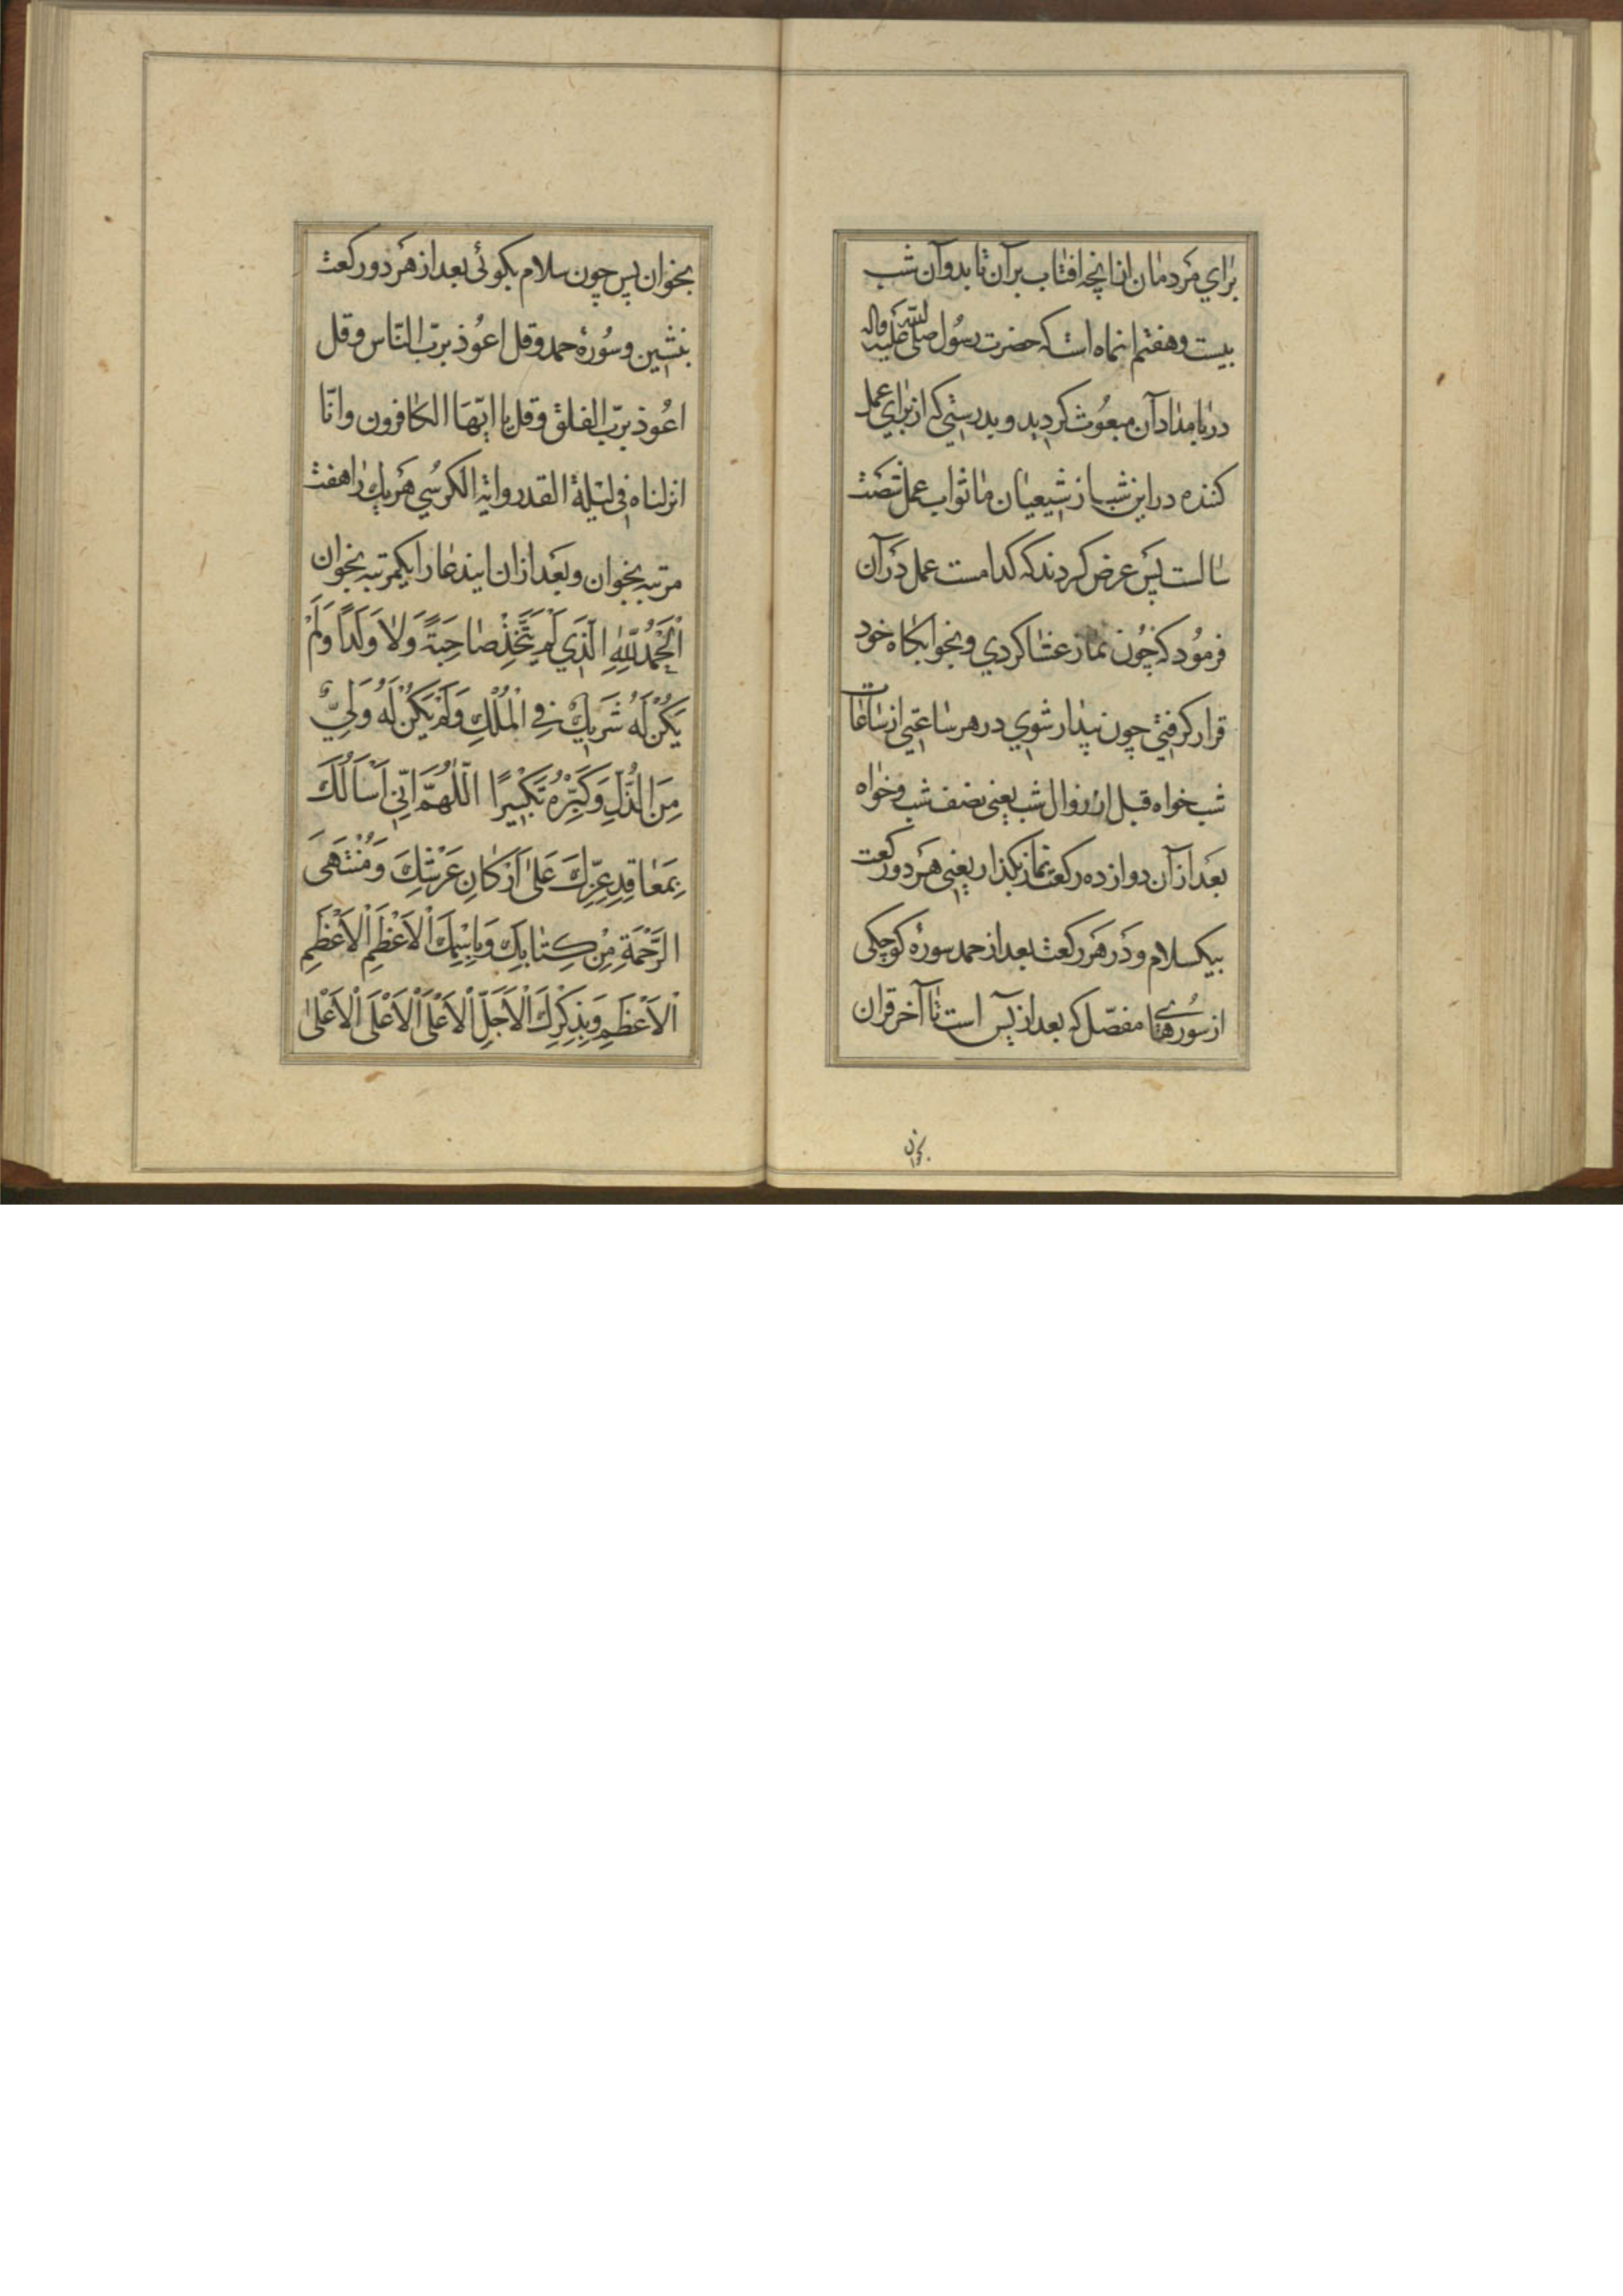 برای مردمان از انچه افتاب بر آن تابد و آن شب
بیست و هفتم اینماه است که حضرت رسول صلی الله علیه واله
در بامداد آن مبعوث کردید و بدرستی که از برای عمل
کننده در این شب از شیعیان ما ثواب عمل شصت
سالست پس عرض کردند که کدامست عمل در آن
فرمود که چون نماز عشا کردی و بخوابکاه خود
قرار کرفتی چون بیدار شوی در هر ساعتی از ساعات
شب خواه قبل از زوال شب یعنی نصف شب و خواه
بعد از آن دوازده رکعت نماز بکذار یعنی هر دو رکعت
بیکسلام و در هر رکعت بعد از حمد سورهٔ کوچکی
از سورهای مفصّل که بعد از یس است تا آخر قران
بخوان
بخوان پس چون سلام بکوئی بعد از هر دو رکعت
بنشین و سورهٔ حمد و قل اعوذ بربّ النّاس و قل
اعوذ بربّ الفلق و قل یا ایّها الکافرون و انّا
انزلناه فی لیلة القدر و ایة الکرسی هر یك را هفت
مرتبه بخوان و بعد از ان ایندعا را یکمرتبه بخوان
اَلْحَمْدُ لِلّٰهِ الَّذِي لَمْ يَتَّخِذْ صَاحِبَةً وَلَا وَلَدًا وَلَمْ
يَكُنْ لَهُ شَرِيكٌ فِي الْمُلْكِ وَلَمْ يَكُنْ لَهُ وَلِيٌّ
مِنَ الذُّلِّ وَكَبِّرْهُ تَكْبِيرًا اَللّٰهُمَّ اِنِّي اَسْاَلُكَ
بِمَعَاقِدِ عِزِّكَ عَلٰى اَرْكَانِ عَرْشِكَ وَمُنْتَهَى
الرَّحْمَةِ مِنْ كِتَابِكَ وَبِاِسْمِكَ الْاَعْظَمِ الْاَعْظَمِ
الْاَعْظَمِ وَبِذِكْرِكَ الْاَجَلِّ الْاَعْلَى الْاَعْلَى الْاَعْلٰى